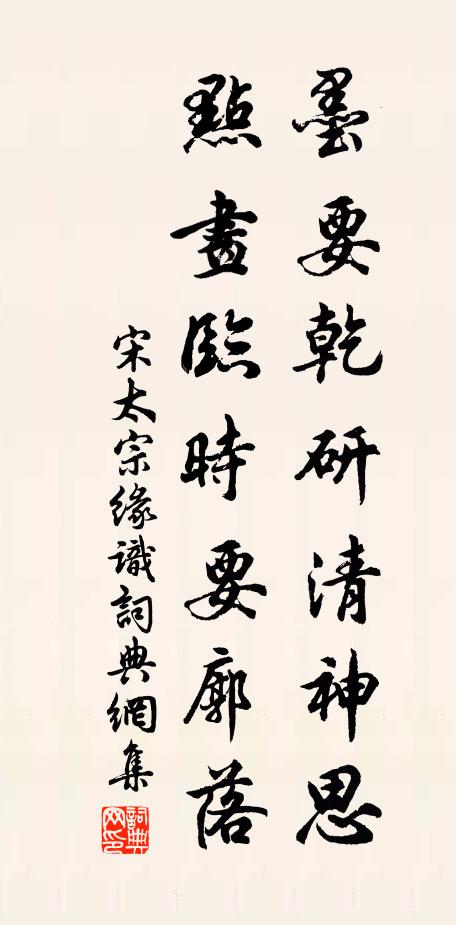 墨要乾研清神思
點畫臨時要廓落
宋太宗緣識詞典網集
詞典
网印